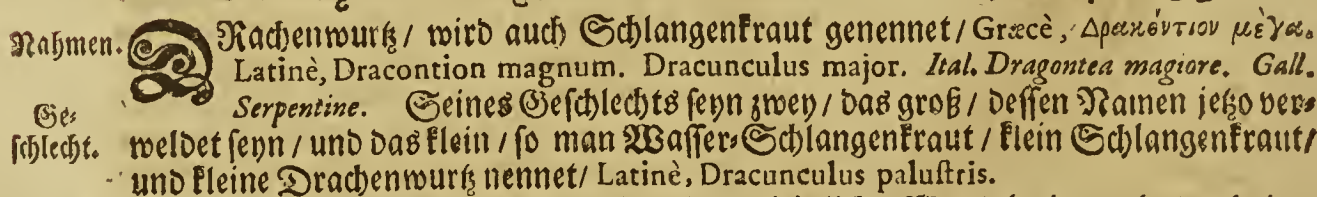 Nahmen.
DRachenwurtz / wird auch Schlangenkraut genennet / Græcè, Δρακόντιον μέγα.
Latinè, Dracontion magnum. Dracunculus major. Ital. Dragontea magiore. Gall.
Serpentine. Seines Geschlechts seyn zwey / das groß / dessen Namen jetzo ver-
Ge-
schlecht.
meldet seyn / und das klein / so man Wasser-Schlangenkraut / klein Schlangenkraut /
und kleine Drachenwurtz nennet / Latinè, Dracunculus palustris.